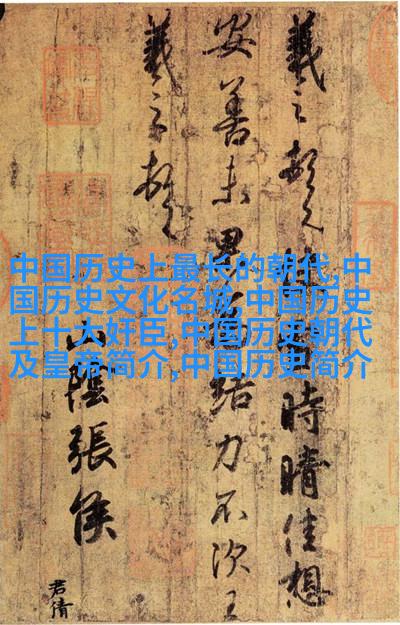 羲之頓首 時晴佳想
安善未果為結力不次王
羲之頓首
山陰張侯
君倩
中国历史上最长的朝代,中
国历史文化名城,中国历史
上十大奸臣,中国历史朝代
及皇帝简介,中国历史简介